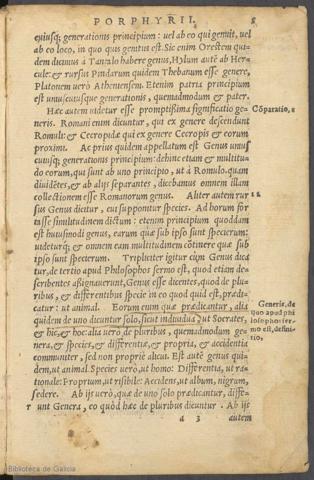 PORPHYRII. 8
cuiusq; generationis principium: uel ab eo qui genuit, uel
ab eo loco, in quo quis genitus est. Sic enim Orestem qui-
dem dicimus à Tantalo habere genus, Hylum autē ab Her-
cule: & rursus Pindarum quidem Thebanum esse genere,
Platonem uerò Atheniensem. Etenim patria principium
est uniuscuiusque generationis, quemadmodum & pater.
Hæc autem uidetur esse promptissima significatio ge-
neris. Romani enim dicuntur, qui ex genere descendunt
Romuli: & Cecropidæ qui ex genere Cecropis & eorum
proximi. Ac prius quidem appellatum est Genus unius
cuiusq; generationis principium: dehinc etiam & multitu-
do eorum, qui sunt ab uno principio, ut à Romulo. quam
diuidētes, & ab alijs separantes, dicebamus omnem illam
collectionem esse Romanorum genus. Aliter autem rur
sus Genus dicitur, cui supponitur species. Ad horum for
tasse similitudinem dictum: etenim principium quoddam
est huiusmodi genus, earum quæ sub ipso sunt specierum:
uideturq; & omnem eam multitudinem cōtinere quæ sub
ipso sunt specierum. Tripliciter igitur cùm Genus dica
tur, de tertio apud Philosophos sermo est, quod etiam de-
scribentes aßignauerunt, Genus esse dicentes, quod de plu-
ribus, & differentibus specie in eo quod quid est, prædi-
catur: ut animal. Eorum enim quæ prædicantur, alia
quidem de uno dicuntur solo, sicut indiuidua, ut Socrates,
& hic, & hoc: alia uerò de pluribus, quemadmodum ge-
nera, & species, & differentiæ, & propria, & accidentia
communiter, sed non propriè alicui. Est autē genus qui-
dem, ut animal. Species uerò, ut homo: Differentia, ut ra-
tionale: Proprium, ut risibile: Accidens, ut album, nigrum,
sedere. Ab ijs uerò, quæ de uno solo prædicantur, diffe-
runt Genera, eo quòd hæc de pluribus dicuntur. Ab ijs
a 3 autem
Cōparatio,
Generis, de
quo apud phi
losophos ser-
mo est, defini-
tio,
Biblioteca de Galicia